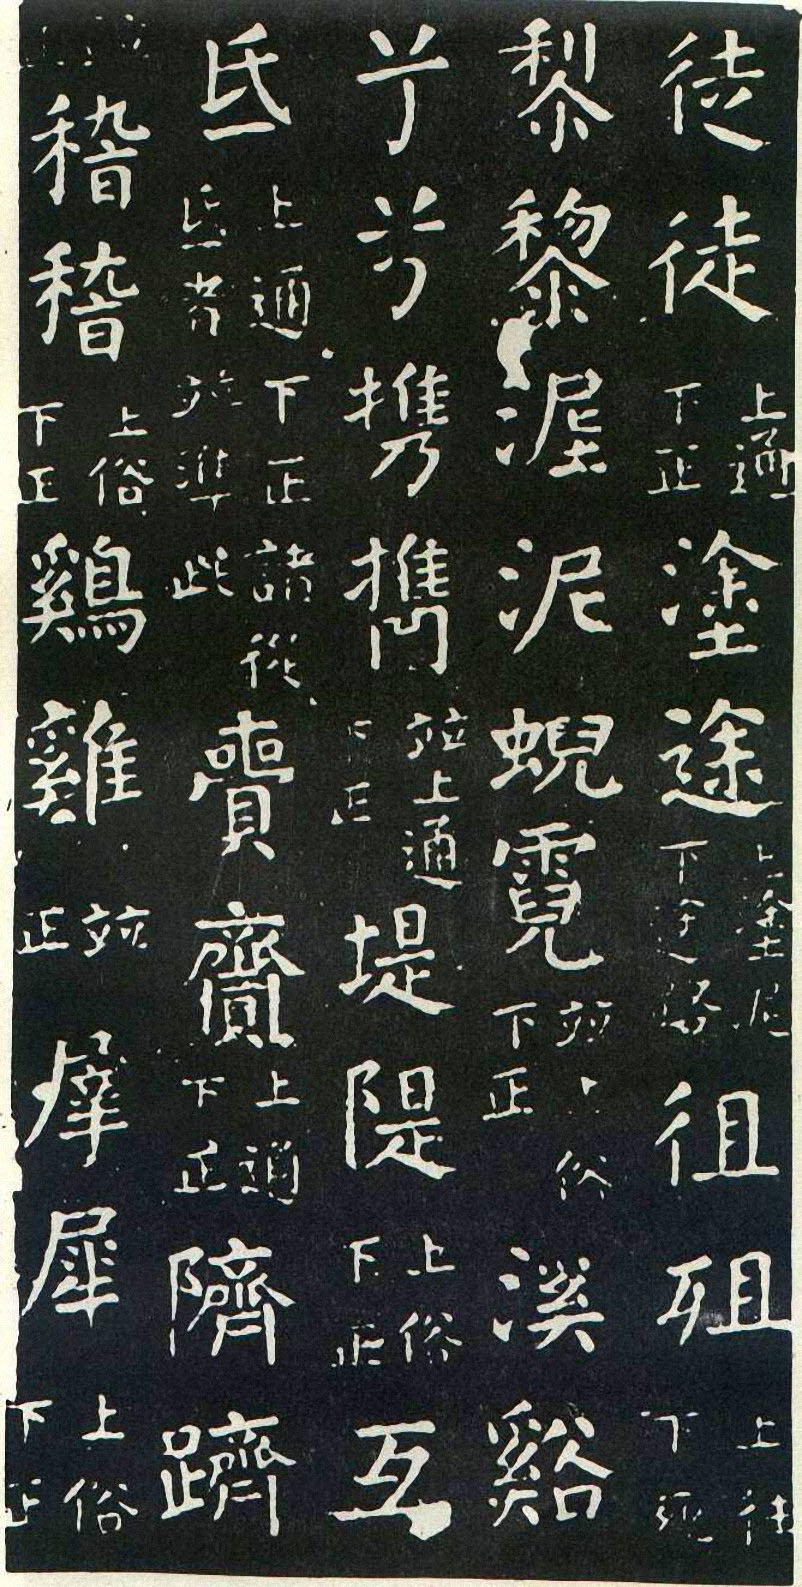 徒徒上通下正塗途上塗泥下途路徂殂上往下死
黎黎泥泥蜺霓並上俗下正溪谿
兮兮携㩗並上通下正堤隄上俗下正互
氐上通下正諸從氐者並準此賷齎上通下正隮躋
稽稽上俗下正鷄雞並正犀上俗下正